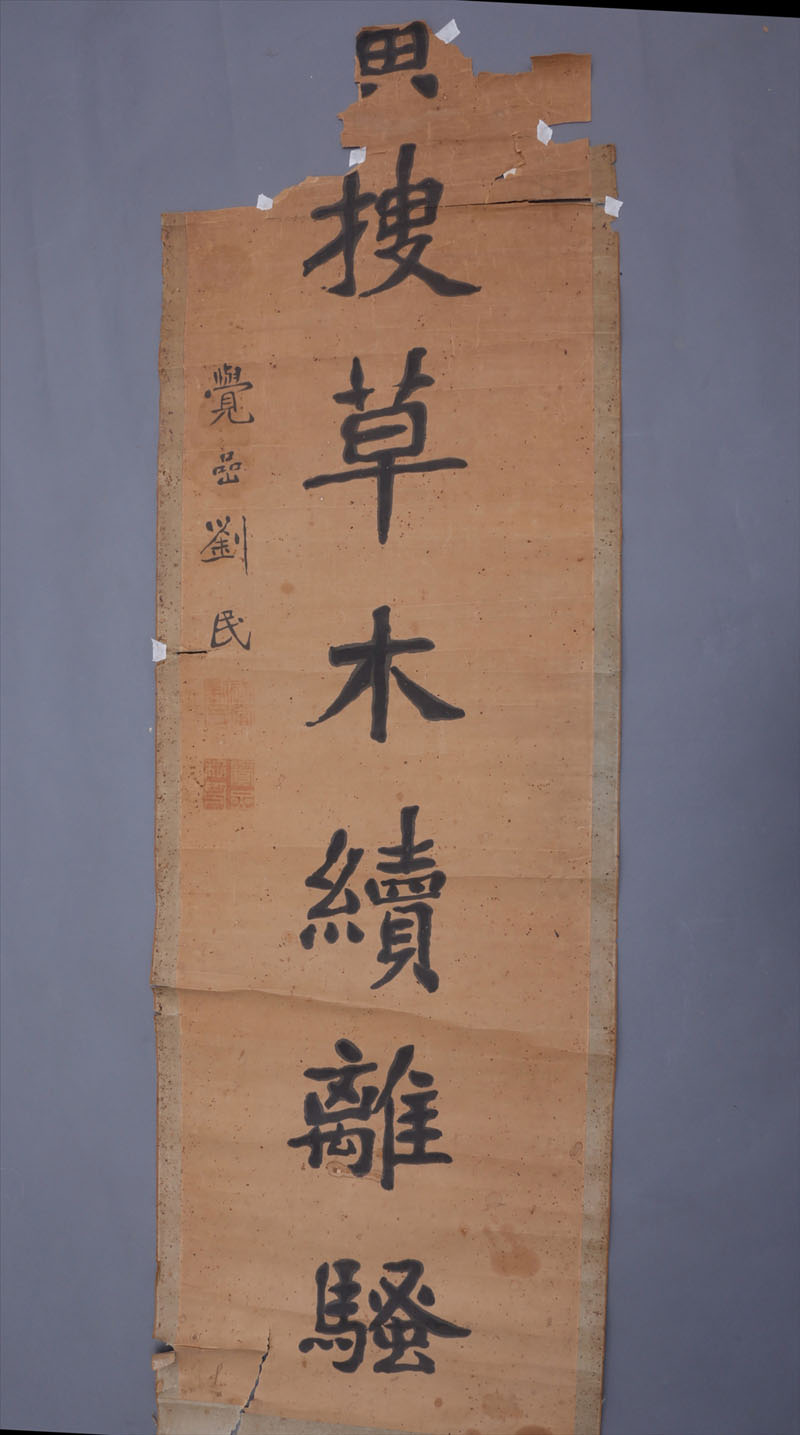 搜草木續離騷
覺嵒劉民